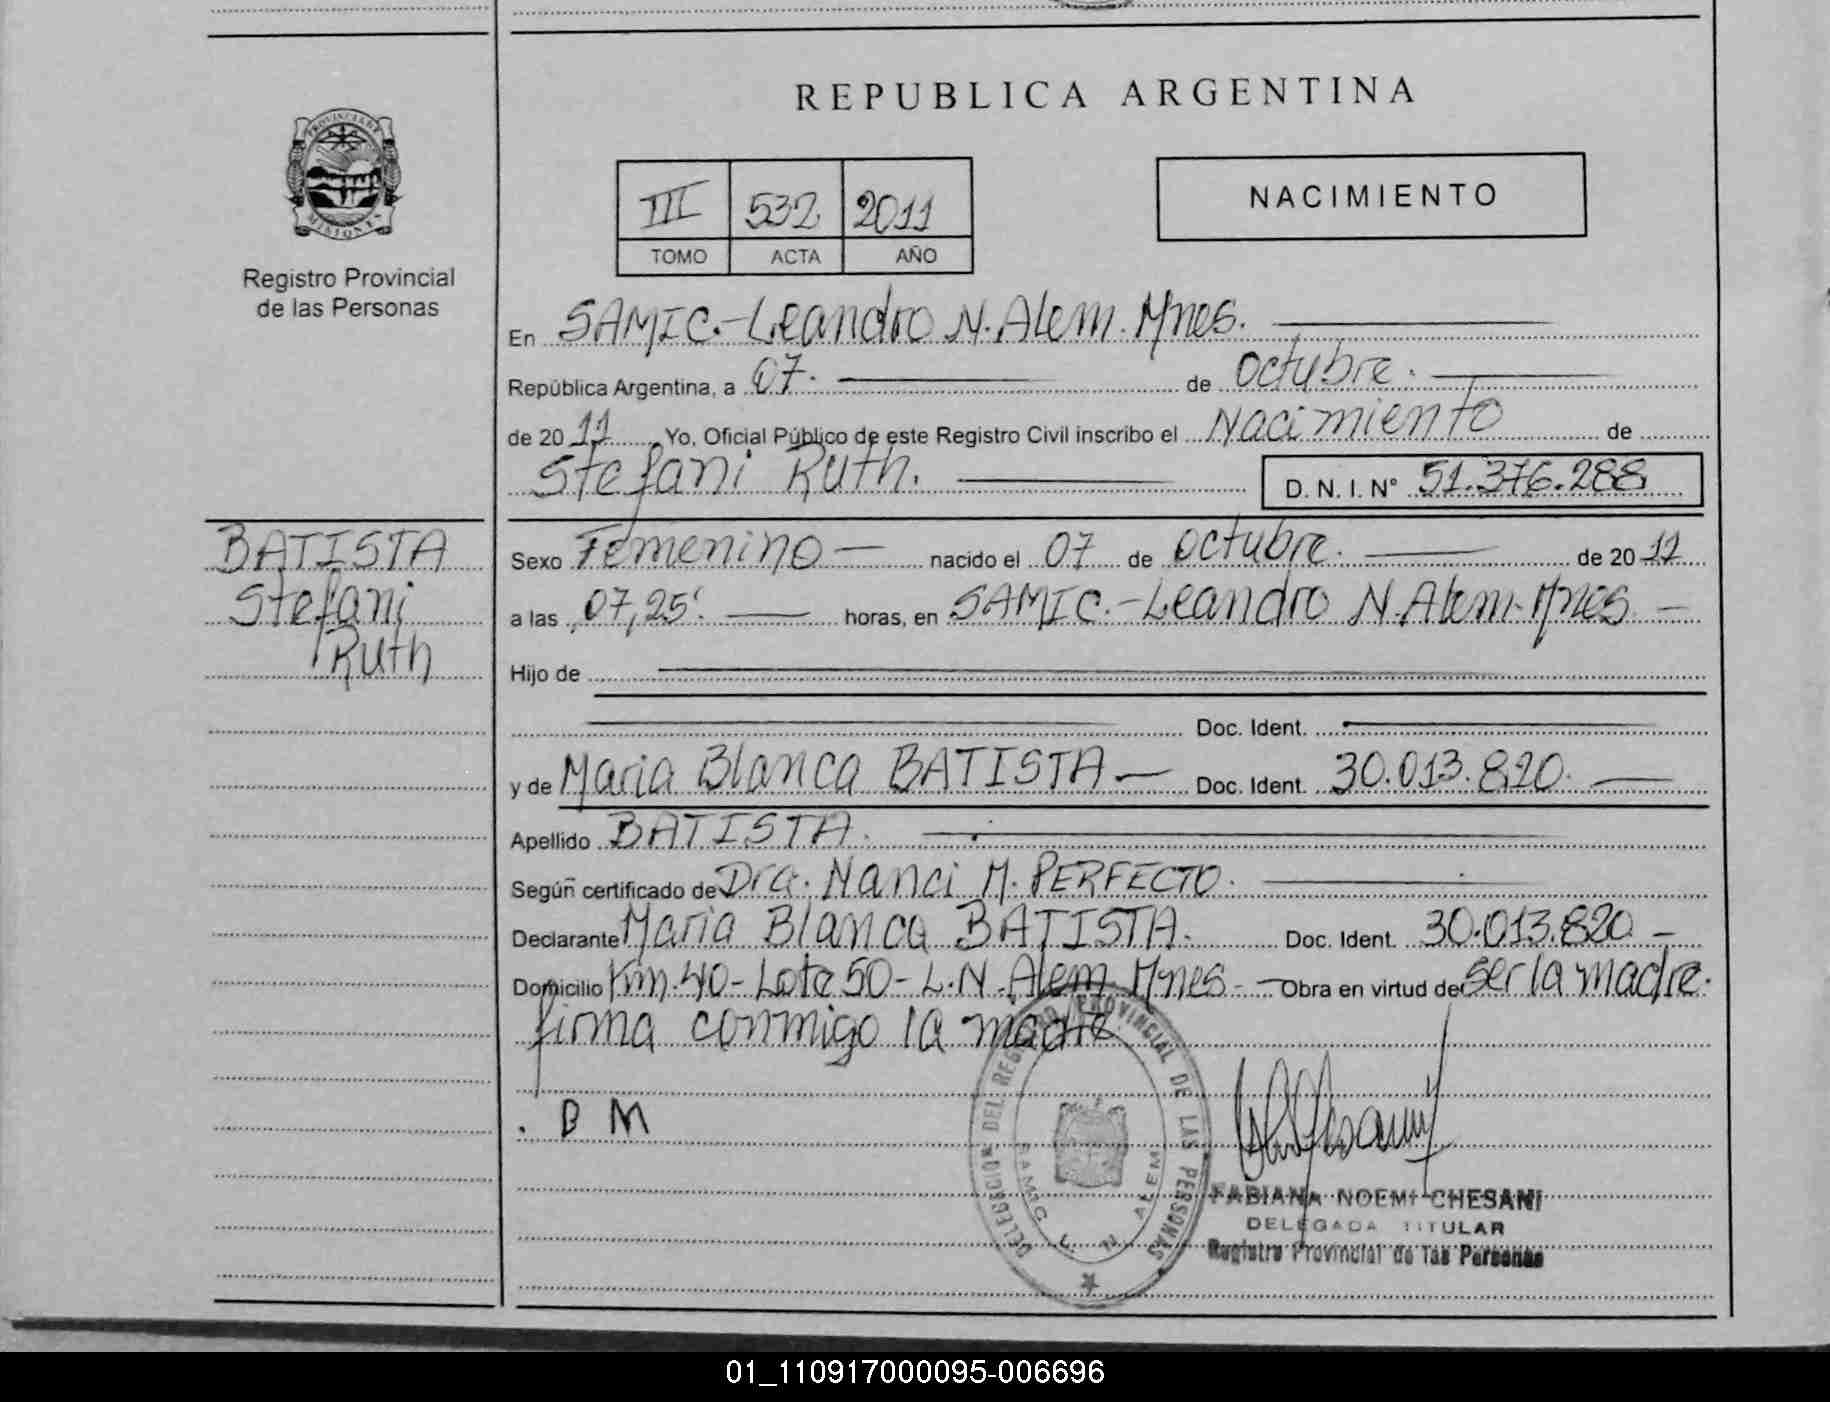 REPUBLICA ARGENTINA
PROVINCIA DE
MISIONES
Registro Provincial
de las Personas
III 532 2011
TOMO ACTA AÑO
NACIMIENTO
En SAMIC.-Leandro N. Alem. Mnes.
República Argentina, a 07. de octubre.
de 20 11 Yo, Oficial Público de este Registro Civil inscribo el Nacimiento de
Stefani Ruth. D. N. I. N° 51.376.288
BATISTA
Stefani
Ruth
Sexo Femenino — nacido el 07 de octubre. de 20 11
a las 07,25'. horas, en SAMIC.-Leandro N. Alem. Mnes. —
Hijo de
Doc. Ident.
y de Maria Blanca BATISTA — Doc. Ident. 30.013.820. —
Apellido BATISTA.
Según certificado de Dra. Nanci M. PERFECTO.
Declarante Maria Blanca BATISTA. Doc. Ident. 30.013.820 —
Domicilio Km. 40 - Lote 50 - L.N. Alem. Mnes. - Obra en virtud de ser la madre.
firma conmigo la madre
. B M
DELEGACION DEL REGISTRO PROVINCIAL DE LAS PERSONAS
SAMIC L. N. ALEM
FABIANA NOEMI CHESANI
DELEGADA TITULAR
Registro Provincial de las Personas
01_110917000095-006696